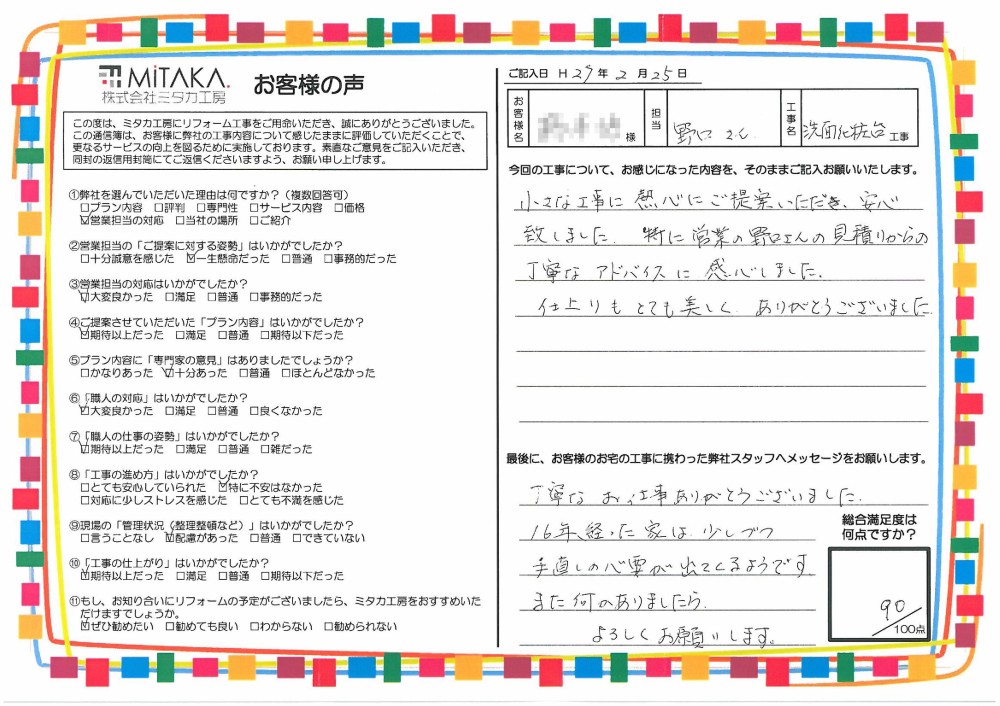 MiTAKA.
株式会社ミタカ工房
お客様の声
この度は、ミタカ工房にリフォーム工事をご用命いただき、誠にありがとうございました。
この通信簿は、お客様に弊社の工事内容について感じたままに評価していただくことで、
更なるサービスの向上を図るために実施しております。素直なご意見をご記入いただき、
同封の返信用封筒にてご返信くださいますよう、お願い申し上げます。
①弊社を選んでいただいた理由は何ですか？（複数回答可）
□プラン内容 □評判 □専門性 □サービス内容 □価格
☑営業担当の対応 □当社の場所 □ご紹介
②営業担当の「ご提案に対する姿勢」はいかがでしたか？
□十分誠意を感じた ☑一生懸命だった □普通 □事務的だった
③営業担当の対応はいかがでしたか？
☑大変良かった □満足 □普通 □事務的だった
④ご提案させていただいた「プラン内容」はいかがでしたか？
☑期待以上だった □満足 □普通 □期待以下だった
⑤プラン内容に「専門家の意見」はありましたでしょうか？
□かなりあった ☑十分あった □普通 □ほとんどなかった
⑥「職人の対応」はいかがでしたか？
☑大変良かった □満足 □普通 □良くなかった
⑦「職人の仕事の姿勢」はいかがでしたか？
☑期待以上だった □満足 □普通 □雑だった
⑧「工事の進め方」はいかがでしたか？
□とても安心していられた ☑特に不安はなかった
□対応に少しストレスを感じた □とても不満を感じた
⑨現場の「管理状況（整理整頓など）」はいかがでしたか？
□言うことなし ☑配慮があった □普通 □できていない
⑩「工事の仕上がり」はいかがでしたか？
☑期待以上だった □満足 □普通 □期待以下だった
⑪もし、お知り合いにリフォームの予定がございましたら、ミタカ工房をおすすめいた
だけますでしょうか。
☑ぜひ勧めたい □勧めても良い □わからない □勧められない
ご記入日 H29年2月25日
お客様名 様 担当 野口 工事名 洗面化粧台 工事
今回の工事について、お感じになった内容を、そのままご記入お願いいたします。
小さな工事に熱心にご提案いただき、安心
致しました。特に営業の野口さんの見積りからの
丁寧なアドバイスに感心しました。
仕上りもとても美しく、ありがとうございました
最後に、お客様のお宅の工事に携わった弊社スタッフへメッセージをお願いします。
丁寧なお仕事ありがとうございました。
16年経った家は少しづつ
手直しの必要が出てくるようです
また何かありましたら、
よろしくお願いします。
総合満足度は
何点ですか？
90
100点